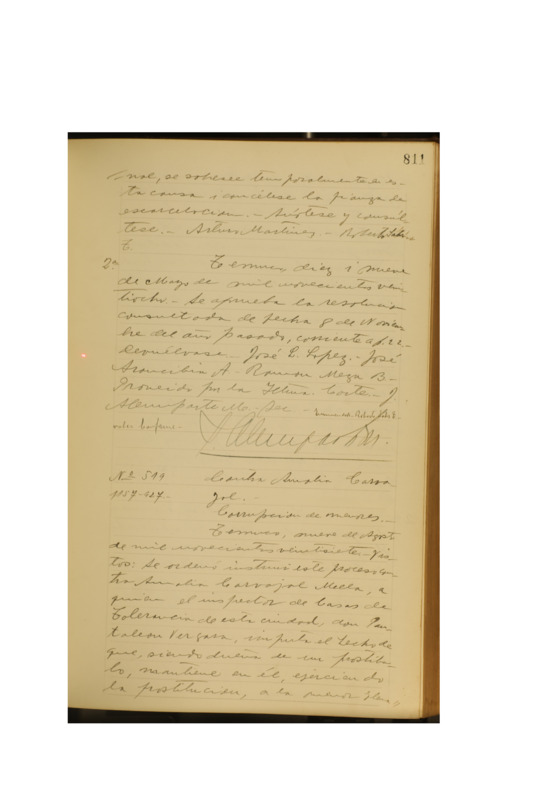 811
nal, se sobresee temporalmente en es-
ta causa i cancélese la fianza de
escarcelacion. - Anótese y consúl-
tese. - Arturo Martinez. - Roberto
2ª
Temuco, diez i nueve
de Mayo de mil novecientos vein
tiocho - Se aprueba la resolucion
consultada de fecha 8 de Noviem
bre del año pasado, corriente a
Devuélvase - José L. Lopez. - José
A - Ramon Meza B -
Proveido por la Iltma. Corte. - J
Sec -
Nº 511
1157-927 -
Contra Amalia Carva
jal. -
Corrupcion de menores. -
Temuco, nueve de Agosto
de mil novecientos veintisiete - Vis-
tos: Se ordenó instruir este proceso con
tra Amalia Carvajal Mella, a
quien el inspector de Casas de
Tolerancia de esta ciudad, don Pan
taleon Vergara, imputa el hecho de
que, siendo dueña de un prostíbu-
lo, mantiene en él, ejerciendo
la prostitucion, a la menor